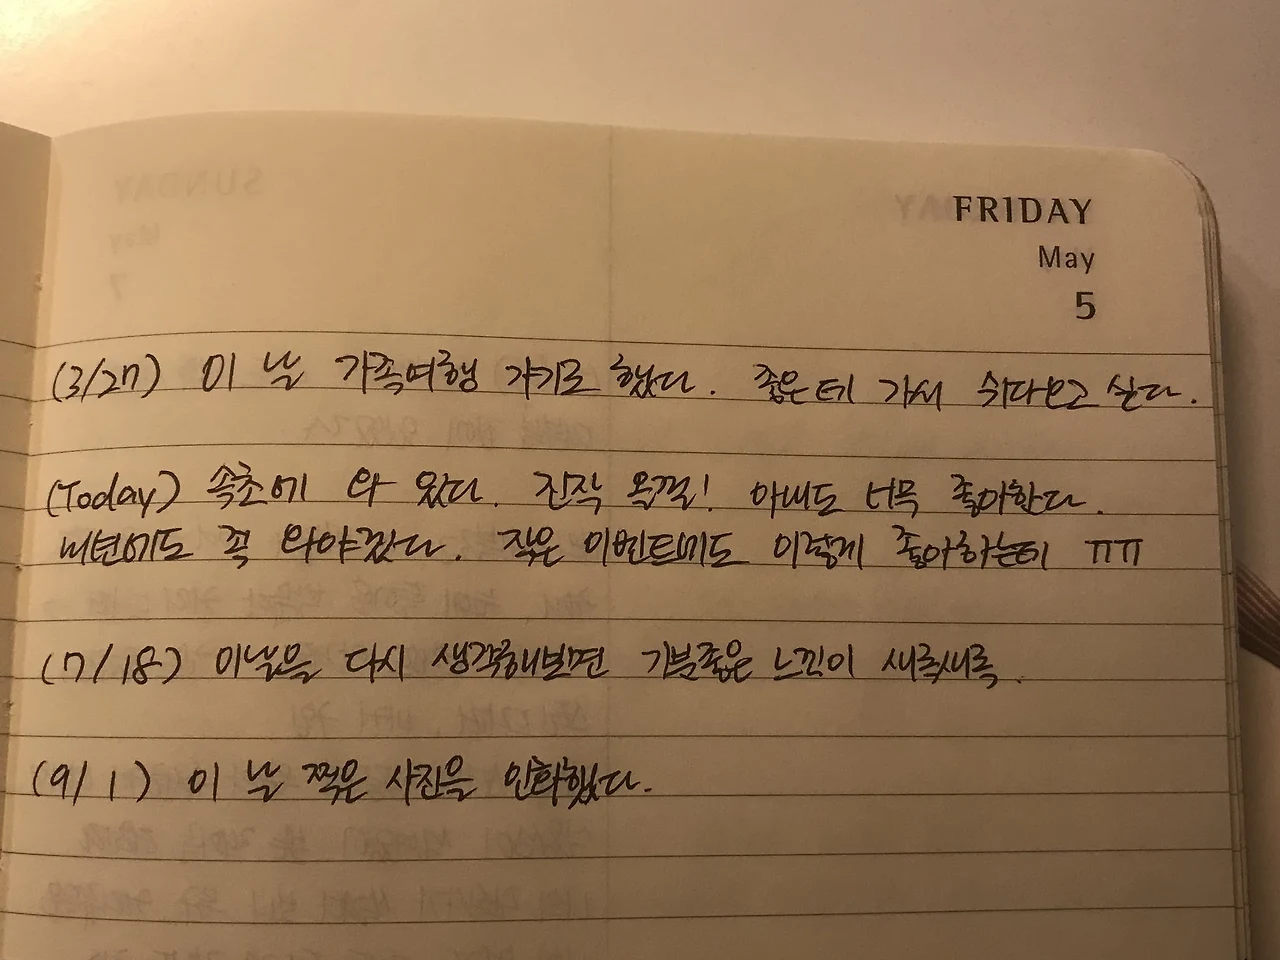 FRIDAY
May
5
(3/27) 이 날 가족여행 가기로 했다. 좋은데 가서 쉬다오고 싶다.
(Today) 속초에 와 있다. 진작 올껄! 아내도 너무 좋아한다.
내년에도 꼭 와야겠다. 작은 이벤트에도 이렇게 좋아하는데 ㅠㅠ
(7/18) 이날을 다시 생각해보면 기분좋은 느낌이 새록새록.
(9/1) 이 날 찍은 사진을 인화했다.